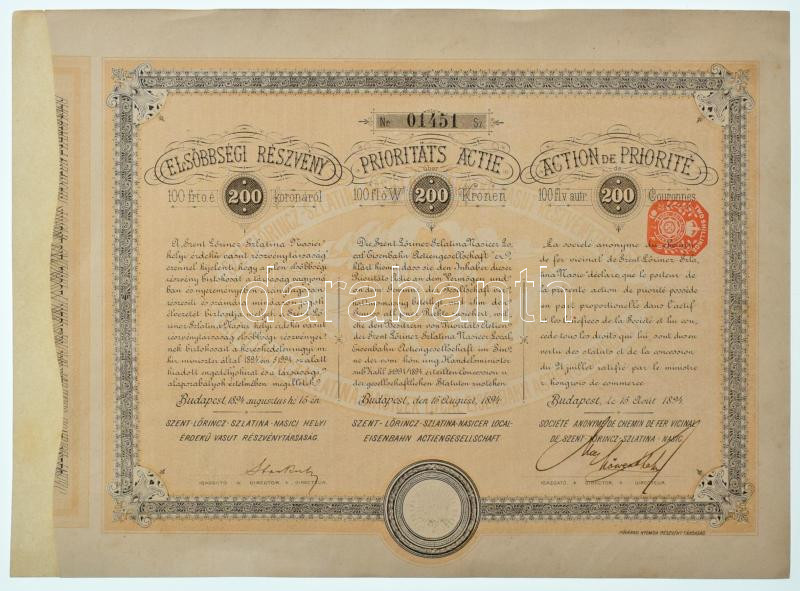 No 01451 Sz.
ELSŐBBSÉGI RÉSZVÉNY
100 frt o.é. 200 koronáról
A Szent Lőrincz-Szlatina Nasicei
helyi érdekű vasút részvénytársaság
ezennel kijelenti, hogy a jelen elsőbbségi
részvény birtokosát a társaság vagyoná-
ban és nyereményében
részesíti és számára mindazon jogok
élvezetét biztosítja
Lőrincz-Szlatina Nasicei helyi érdekű vasút
részvénytársaság elsőbbségi részvényei-
nek birtokosait a kereskedelemügyi m.
kir. minister által 1894 évi alatt
kiadott engedélyokirat és a társasági
alapszabályok értelmében megilletik.
Budapest, 1894. augusztus hó 15-én.
SZENT-LŐRINCZ-SZLATINA-NASICI HELYI
ÉRDEKŰ VASUT RÉSZVÉNYTÁRSASÁG.
IGAZGATÓ. DIRECTOR. DIRECTEUR.
PRIORITÄTS ACTIE
über
100 fl. ö. W. 200 Kronen
Die Szent Lőrincz-Szlatina Nasicer Lo-
cal Eisenbahn Actiengesellschaft er-
klärt hiemit dass sie den Inhaber dieser
Prioritäts Actie an dem Vermögen und
an dem Gewinn der Gesellschaft ver-
hältnissmässig betheiligt und ihm den
Genuss aller jener Rechte zusichert, wel-
che den Besitzern von Prioritäts Actien
der Szent Lőrincz-Szlatina Nasicer Local
Eisenbahn Actiengesellschaft im Sin-
ne der vom kön. ung. Handelsminister
sub Zahl 1894 ertheilten Concession u.
der gesellschaftlichen Statuten zustehen.
Budapest, den 15 August, 1894.
SZENT-LŐRINCZ-SZLATINA-NASICER LOCAL-
EISENBAHN ACTIENGESELLSCHAFT.
ACTION DE PRIORITÉ
de
100 fl. v. autr. 200 Couronnes
TWO SHILLINGS
La société anonyme du chemin
de fer vicinal de Szent Lőrincz-Szla-
tina Nasic déclare que le porteur de
la présente action de priorité possède
en part proportionelle dans l'actif
et les bénéfices de la Société et lui con-
cède tous les droits qui lui sont dus en
vertu des statuts et de la concession
du 21 juillet ratifié par le ministre
r. hongrois de commerce.
Budapest, le 15 Août 1894.
SOCIÉTÉ ANONYME DE CHEMIN DE FER VICINAL
DE SZENT-LŐRINCZ-SZLATINA-NASIC.
IGAZGATÓ. DIRECTOR. DIRECTEUR.
PÁTRIA NYOMDA RÉSZVÉNY TÁRSASÁG.
darabanth